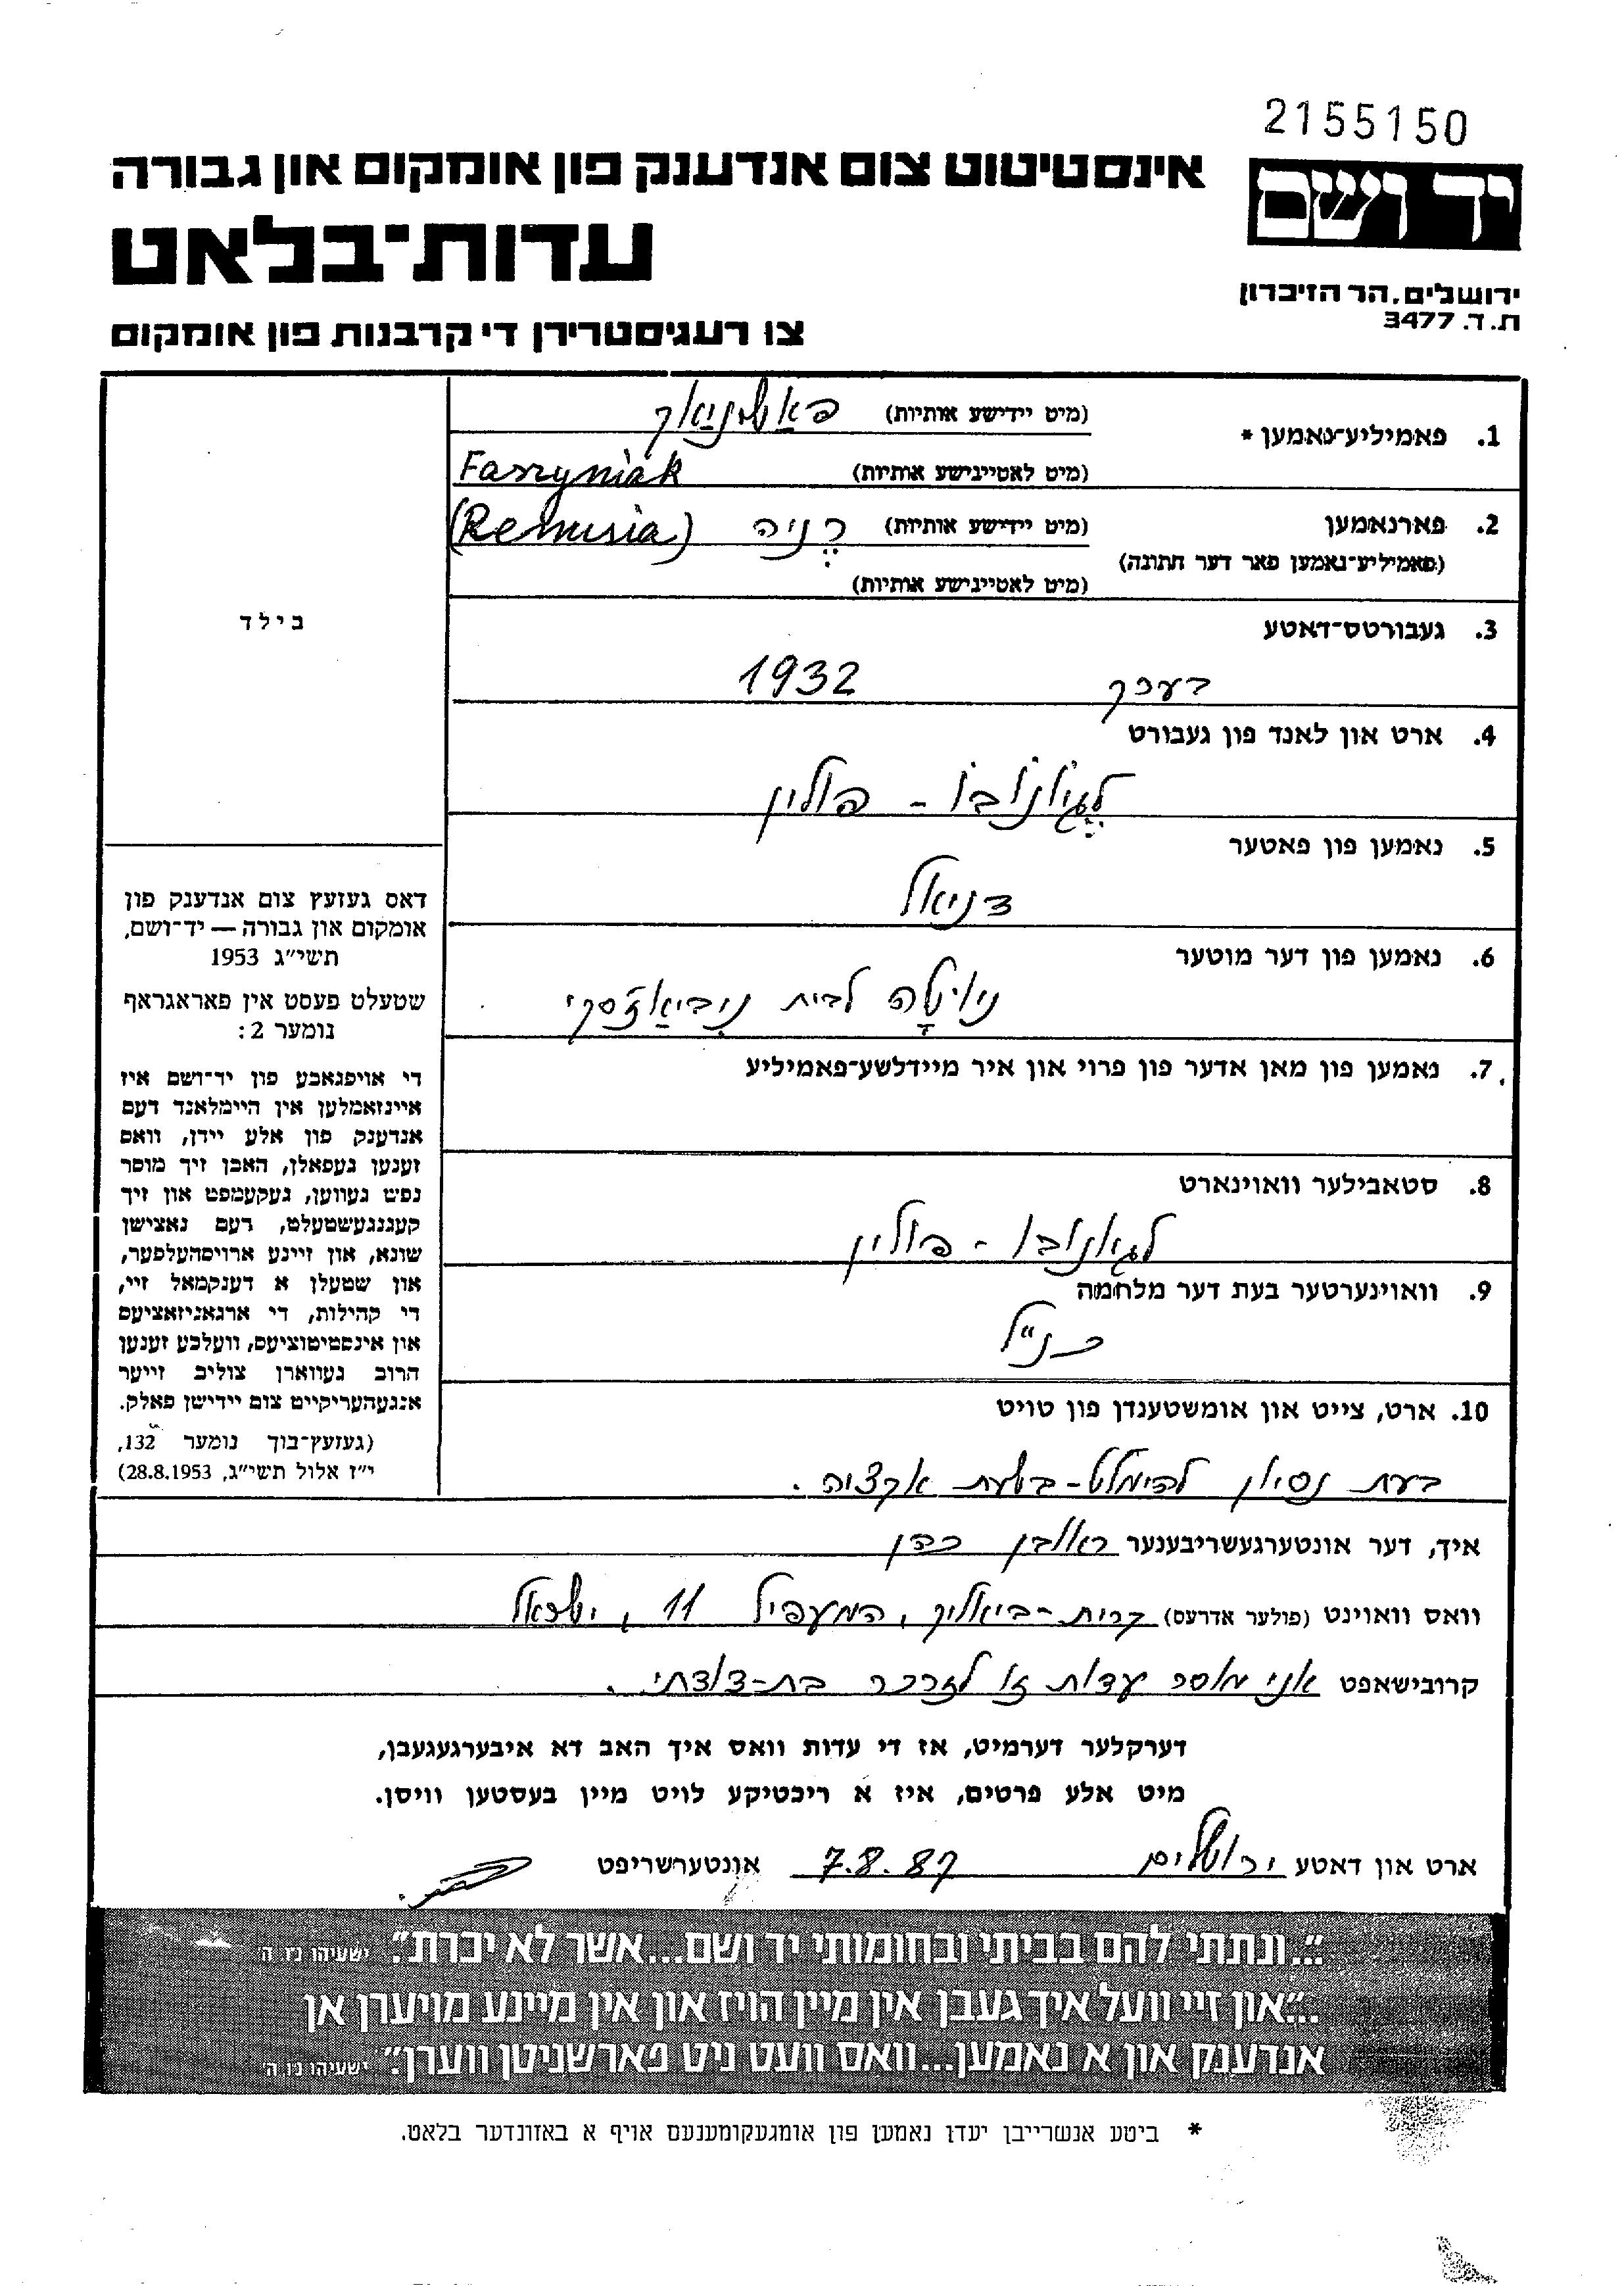 2155150
יד ושם
ירושלים, הר הזיכרון
ת.ד. 3477
אינסטיטוט צום אנדענק פון אומקום און גבורה
עדות־בלאט
צו רעגיסטרירן די קרבנות פון אומקום
1. פאמיליע־נאמען * (מיט יידישע אותיות) פאשניאק
(מיט לאטיינישע אותיות) Faszyniak
2. פארנאמען (מיט יידישע אותיות) רֶניה (Renusia)
(פאמיליע־נאמען פאר דער חתונה)
(מיט לאטיינישע אותיות)
3. געבורטס־דאטע
בערך 1932
4. ארט און לאנד פון געבורט
לֶגיונובו - פולין
5. נאמען פון פאטער
דניאל
6. נאמען פון דער מוטער
לבית
7. נאמען פון מאן אדער פון פרוי און איר מיידלשע־פאמיליע
8. סטאבילער וואוינארט
לגיונובו - פולין
9. וואוינערטער בעת דער מלחמה
כנ"ל
10. ארט, צייט און אומשטענדן פון טויט
בעת נסיון להימלט - בשעת אקציה.
בילד
דאס געזעץ צום אנדענק פון
אומקום און גבורה — יד־ושם,
תשי״ג 1953
שטעלט פעסט אין פאראגראף
נומער 2:
די אויפגאבע פון יד־ושם איז
איינזאמלען אין היימלאנד דעם
אנדענק פון אלע יידן, וואס
זענען געפאלן, האבן זיך מוסר
נפש געווען, געקעמפט און זיך
קעגנגעשטעלט, דעם נאצישן
שונא, און זיינע ארויסהעלפער,
און שטעלן א דענקמאל זיי,
די קהילות, די ארגאניזאציעס
און אינסטיטוציעס, וועלכע זענען
הרוב געווארן צוליב זייער
אנגעהעריקייט צום יידישן פאלק.
(געזעץ־בוך נומער 132,
י״ז אלול תשי״ג, 28.8.1953)
איך, דער אונטערגעשריבענער ראובן כהן
וואס וואוינט (פולער אדרעס) קרית-ביאליק, המעפיל 11, ישראל
קרובישאפט אני מוסר עדות זו לזכר בת-דודתי.
דערקלער דערמיט, אז די עדות וואס איך האב דא איבערגעגעבן,
מיט אלע פרטים, איז א ריכטיקע לויט מיין בעסטען וויסן.
ארט און דאטע ירושלים 7.8.87 אונטערשריפט
״...ונתתי להם בביתי ובחומותי יד ושם...אשר לא יכרת״. ישעיהו נו, ה׳
״...און זיי וועל איך געבן אין מיין הויז און אין מיינע מויערן אן
אנדענק און א נאמען...וואס וועט ניט פארשניטן ווערן״. ישעיהו נו, ה׳
* ביטע אנשרייבן יעדן נאמען פון אומגעקומענעם אויף א באזונדער בלאט.